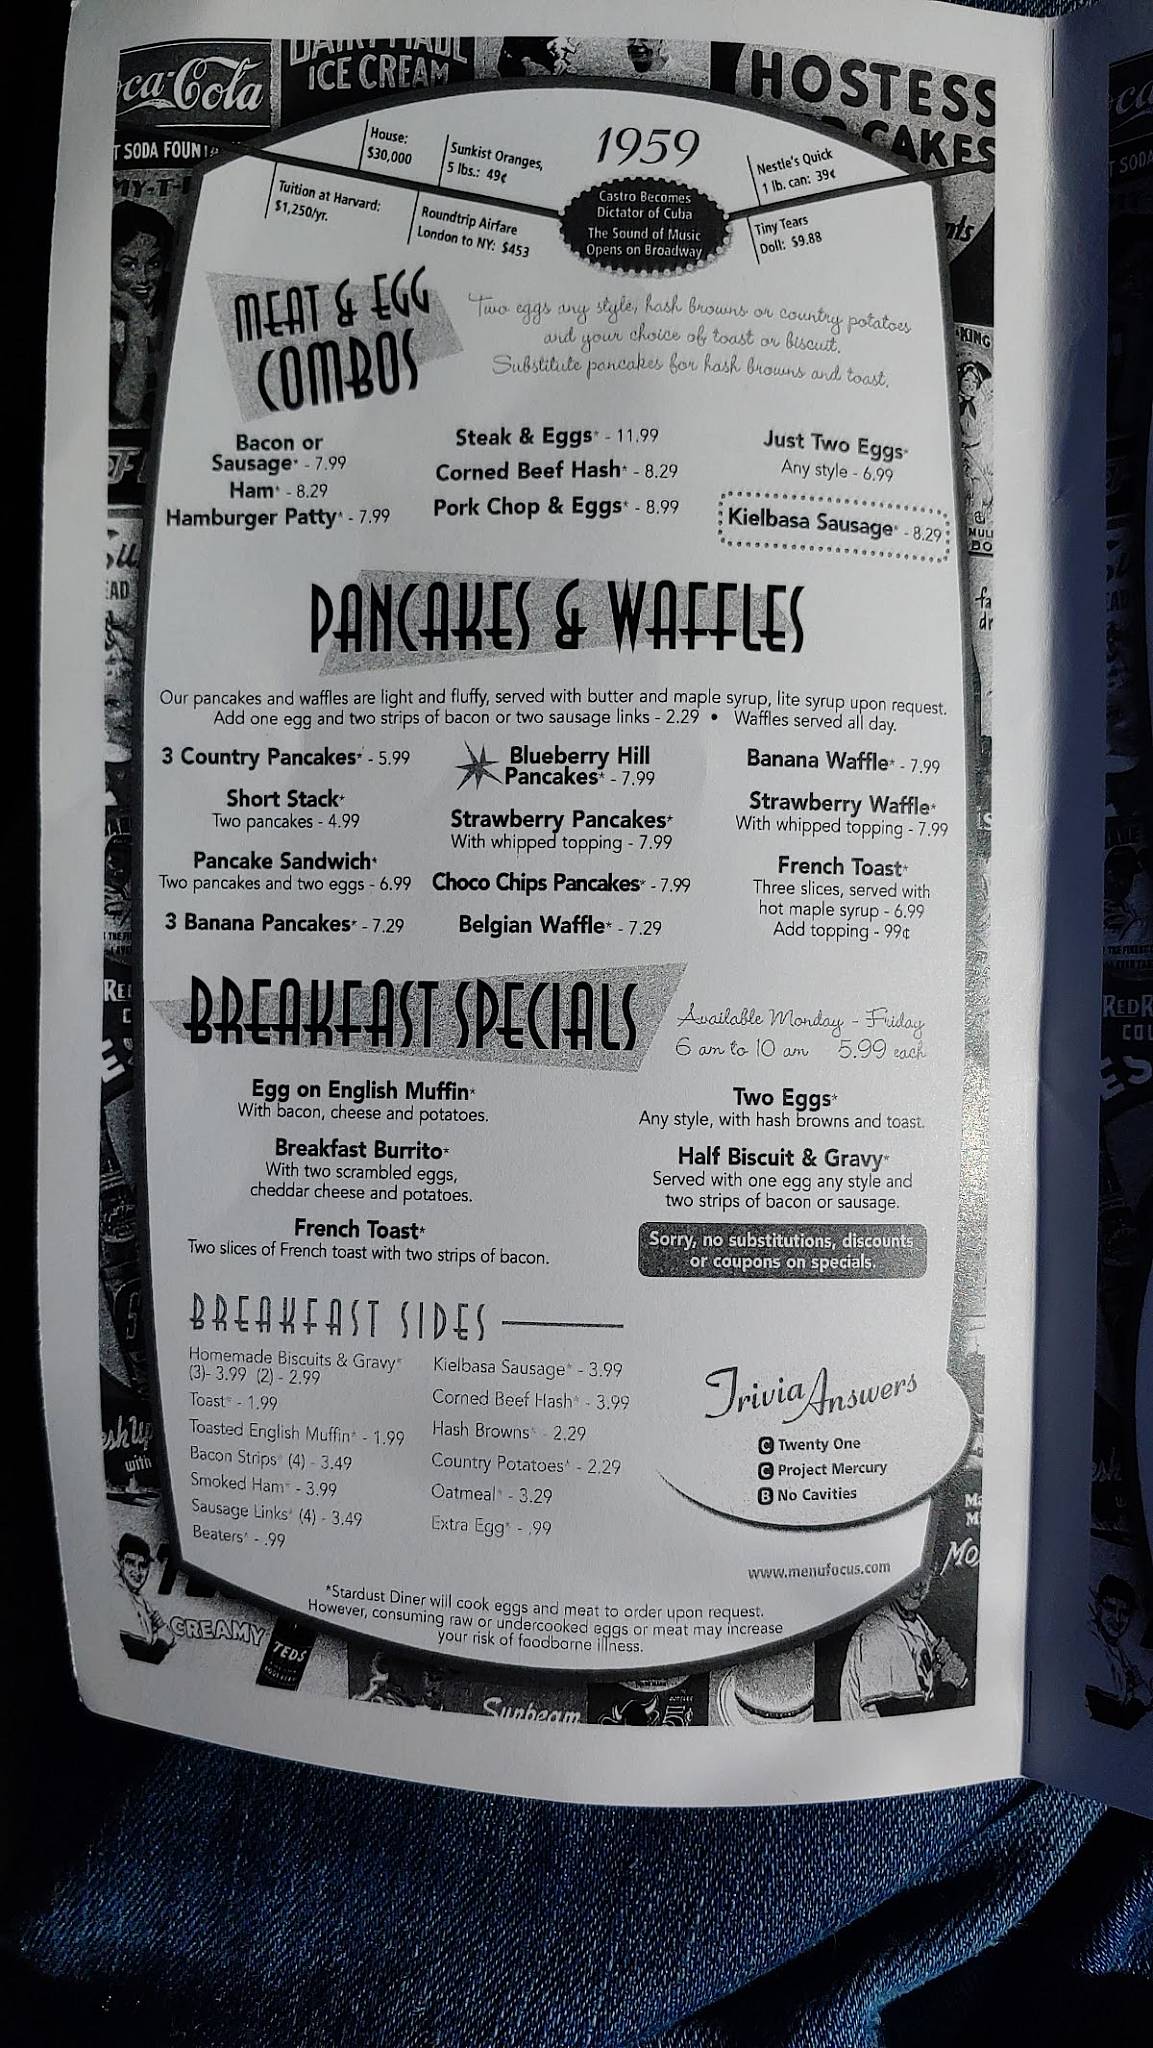 Coca-Cola
ICE CREAM
HOSTESS
CAKES
House:
$30,000
Sunkist Oranges,
5 lbs.: 49¢
1959
Nestle's Quick
1 lb. can: 39¢
Tuition at Harvard:
$1,250/yr.
Roundtrip Airfare
London to NY: $453
Castro Becomes
Dictator of Cuba
The Sound of Music
Opens on Broadway
Tiny Tears
Doll: $9.88
MEAT & EGG
COMBOS
Two eggs any style, hash browns or country potatoes
and your choice of toast or biscuit.
Substitute pancakes for hash browns and toast.
Bacon or
Sausage* - 7.99
Ham* - 8.29
Hamburger Patty* - 7.99
Steak & Eggs* - 11.99
Corned Beef Hash* - 8.29
Pork Chop & Eggs* - 8.99
Just Two Eggs*
Any style - 6.99
Kielbasa Sausage* - 8.29
PANCAKES & WAFFLES
Our pancakes and waffles are light and fluffy, served with butter and maple syrup, lite syrup upon request.
Add one egg and two strips of bacon or two sausage links - 2.29 • Waffles served all day.
3 Country Pancakes* - 5.99
Short Stack*
Two pancakes - 4.99
Pancake Sandwich*
Two pancakes and two eggs - 6.99
3 Banana Pancakes* - 7.29
Blueberry Hill
Pancakes* - 7.99
Strawberry Pancakes*
With whipped topping - 7.99
Choco Chips Pancakes* - 7.99
Belgian Waffle* - 7.29
Banana Waffle* - 7.99
Strawberry Waffle*
With whipped topping - 7.99
French Toast*
Three slices, served with
hot maple syrup - 6.99
Add topping - 99¢
BREAKFAST SPECIALS
Available Monday - Friday
6 am to 10 am 5.99 each
Egg on English Muffin*
With bacon, cheese and potatoes.
Breakfast Burrito*
With two scrambled eggs,
cheddar cheese and potatoes.
French Toast*
Two slices of French toast with two strips of bacon.
Two Eggs*
Any style, with hash browns and toast.
Half Biscuit & Gravy*
Served with one egg any style and
two strips of bacon or sausage.
Sorry, no substitutions, discounts
or coupons on specials.
BREAKFAST SIDES
Homemade Biscuits & Gravy*
(3)- 3.99 (2) - 2.99
Toast* - 1.99
Toasted English Muffin* - 1.99
Bacon Strips* (4) - 3.49
Smoked Ham* - 3.99
Sausage Links* (4) - 3.49
Beaters* - .99
Kielbasa Sausage* - 3.99
Corned Beef Hash* - 3.99
Hash Browns* - 2.29
Country Potatoes* - 2.29
Oatmeal* - 3.29
Extra Egg* - .99
Trivia Answers
C Twenty One
C Project Mercury
B No Cavities
www.menufocus.com
*Stardust Diner will cook eggs and meat to order upon request.
However, consuming raw or undercooked eggs or meat may increase
your risk of foodborne illness.
CREAMY
TEDS
Sunbeam